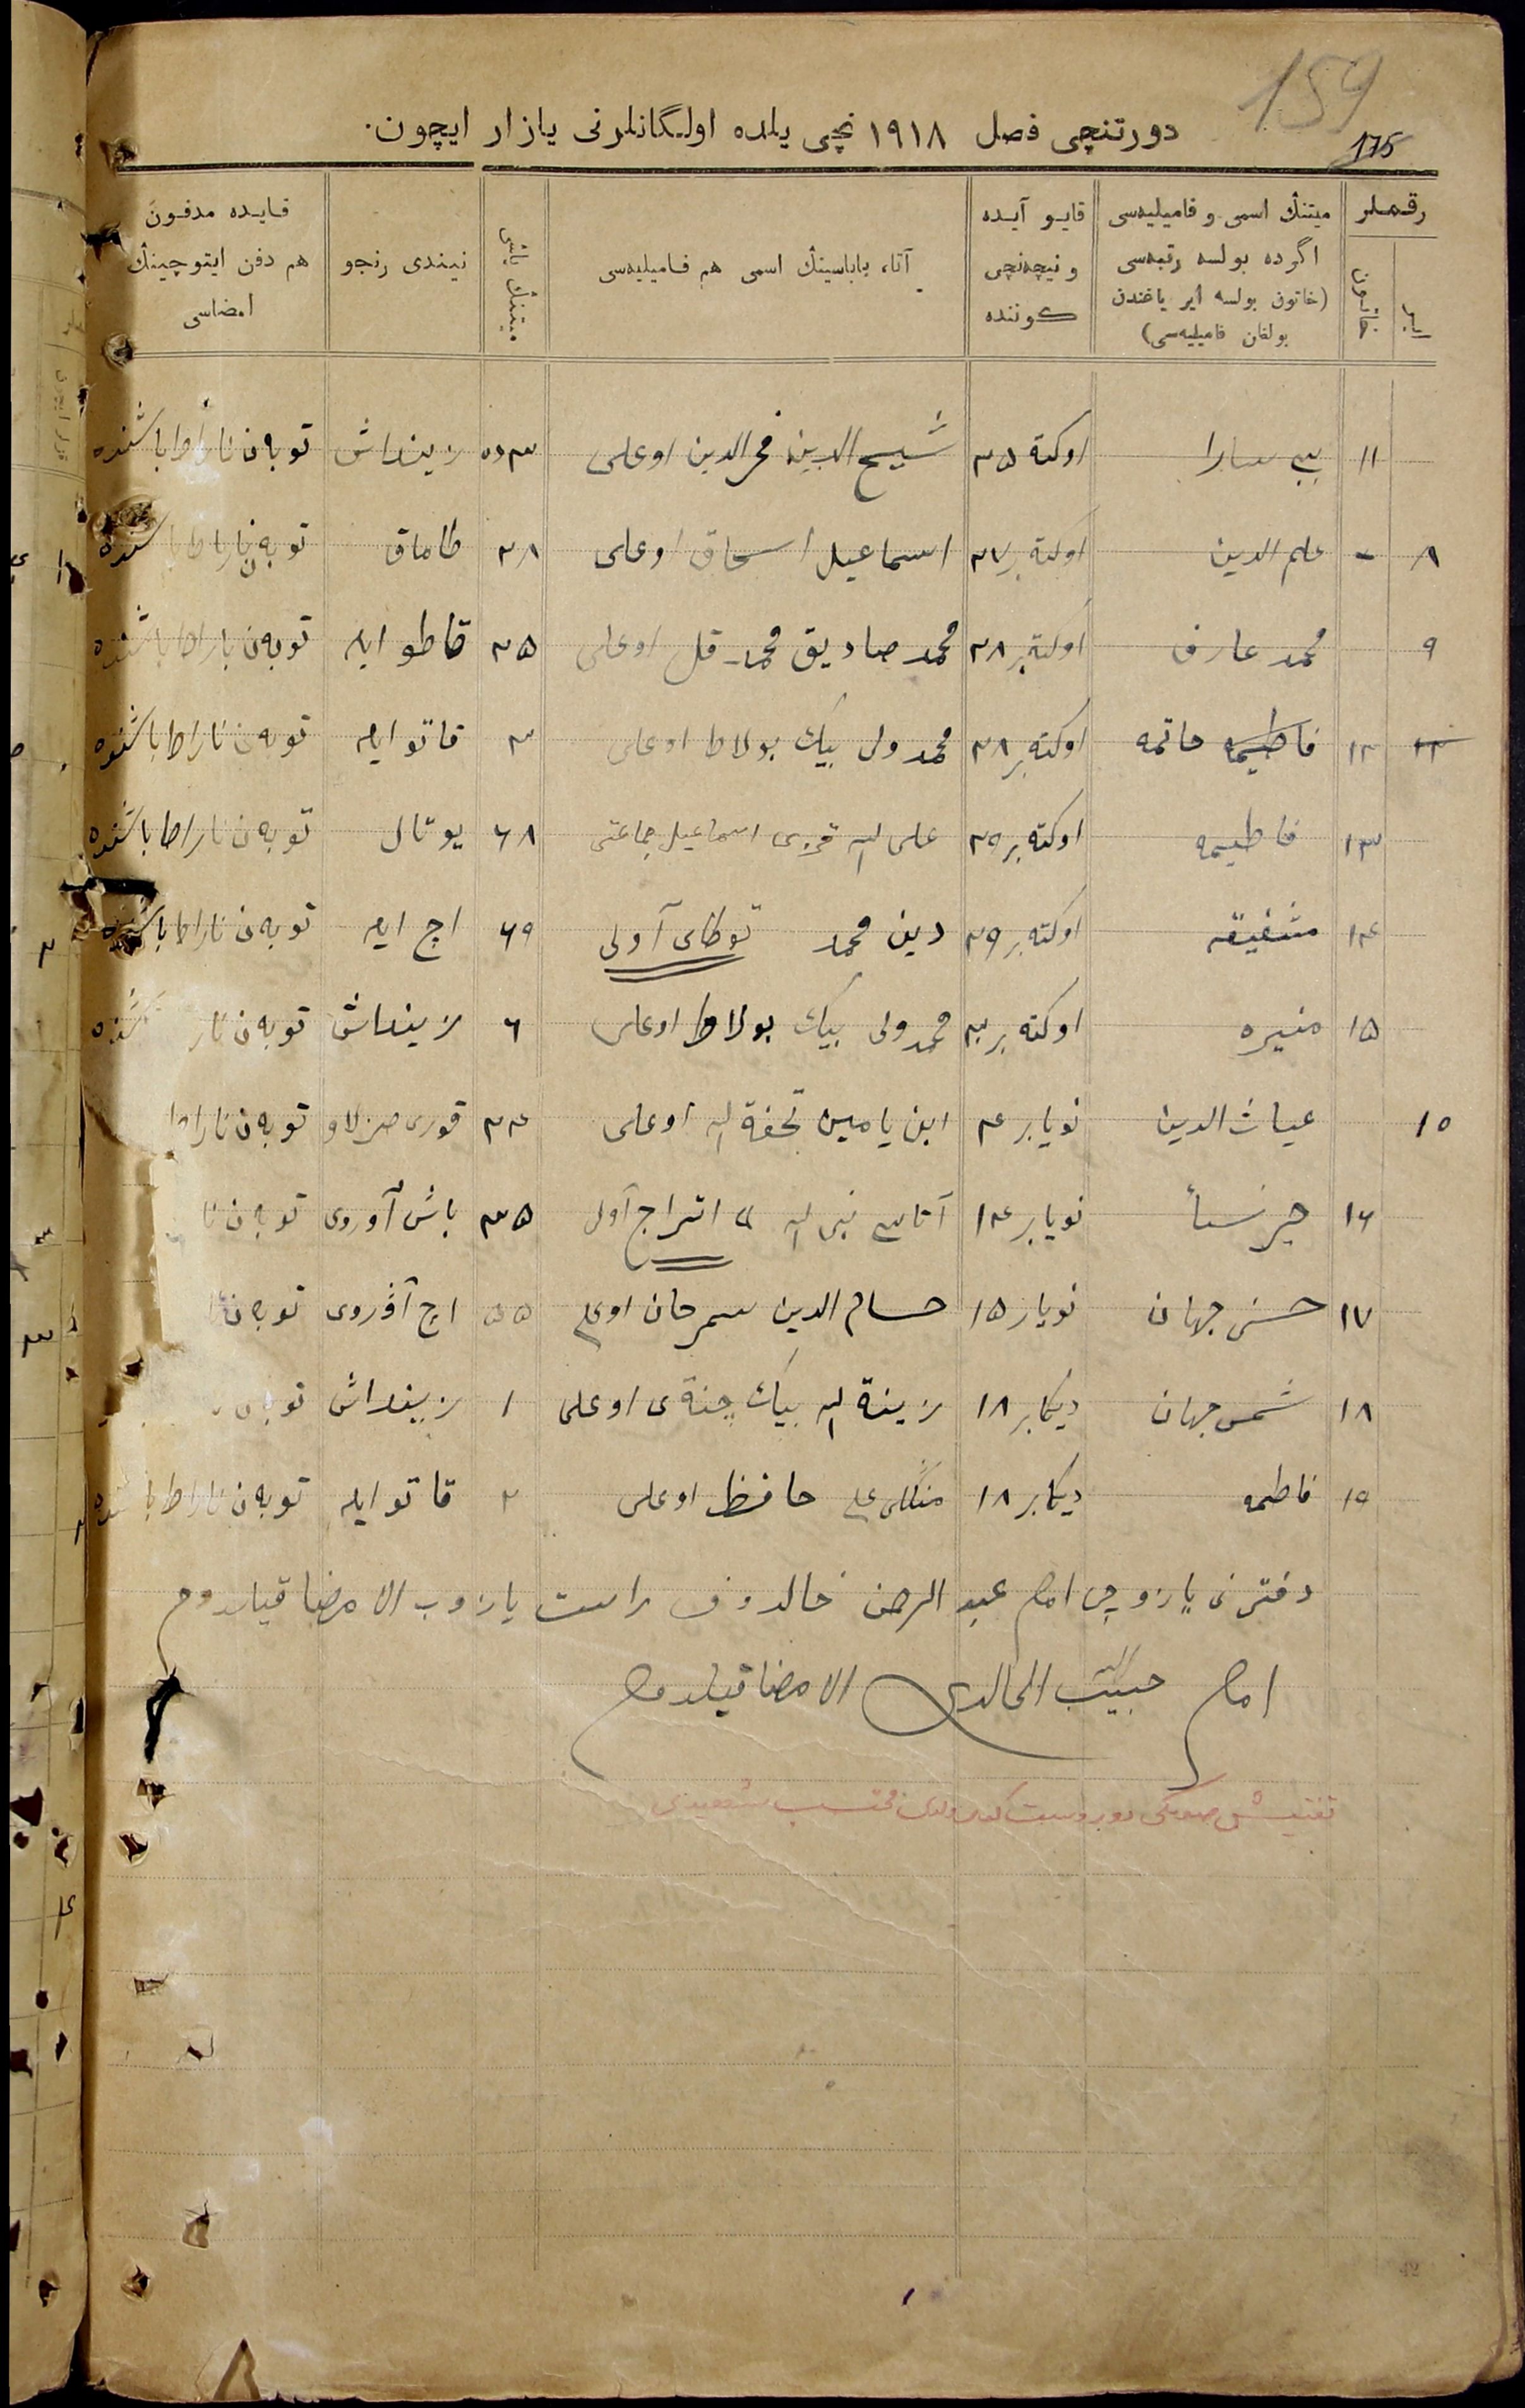 159
175
دورتنچی فصل ۱۹۱۸ نچی یلده اولگانلرنی یازار ایچون.
رقملر
ایر
خاتون
میتنڭ اسمی و فامیلیه‌سی اگرده بولسه رتبه‌سی (خاتون بولسه ایر یاغندن بولغان فامیلیه‌سی)
قایو آیده و نیچه‌نچی کوننده
آتا، باباسینڭ اسمی هم فامیلیه‌سی
میتنڭ یاشی
نیندی رنجو
قایده مدفون هم دفن ایتوچینڭ امضاسی
۱۱ بی بی سارا اوکته ۲۵ شیخ الدین فخرالدین اوغلی زینداش توبه‌ن ناراط باشنده
۸ علم الدین اوکتبر ۲۷ اسماعیل اسحاق اوغلی ۲۸ طاماق توبه‌ن ناراط باشنده
۹ محمد عارف اوکتبر ۲۸ محمد صادیق محمد قل اوغلی ۲۵ قاطو ایله توبه‌ن ناراط باشنده
۱۲ ۱۲ فاطیمه حاتمه اوکتبر ۲۸ محمد ولی بیک بولاط اوغلی ۲ قاتو ایله توبه‌ن ناراط باشنده
۱۳ فاطیمه اوکتبر ۲۹ علی الله اسماعیل جماعتی ۶۸ یوتال توبه‌ن ناراط باشنده
۱۴ شفیقه اوکتبر ۲۹ دین محمد توطای آولی ۶۹ اچ ایله توبه‌ن ناراط باشنده
۱۵ منیره اوکتبر محمد ولی بیک بولاط اوغلی ۶ زینداش توبه‌ن نار شنده
۱۰ غیاث الدین نویابر ۴ ابن یامین تحفة الله اوغلی ۲۴ قوری توبه‌ن ناراط
۱۶ نویابر ۱۴ آتاسی نبی الله اتراچ آولی ۳۵ باش آوروی توبه‌ن نا
۱۷ حسن جهان نویابر ۱۵ حسام الدین اوغلی ۵۵ اچ آوروی توبه‌ن
۱۸ شمس جهان دیکابر ۱۸ زینة الله بیک اوغلی ۱ زینداش توبه‌ن
۱۹ فاطمه دیکابر ۱۸ منگلی علی حافظ اوغلی ۲ قاتو ایله توبه‌ن ناراط باشنده
دفترنی یازوچی امام عبد الرحمن خالدوف راست یازوب الامضا قیلدوم
امام حبیب الله الخالدی الامضا قیلدوم
تفتیش محتسب